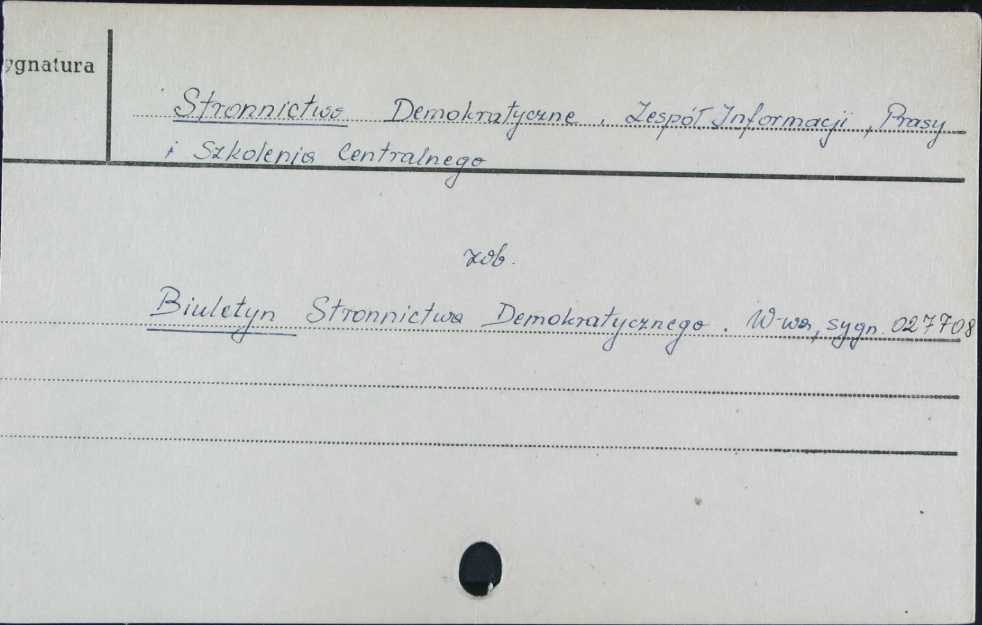 ygnatura
Stronnictwo Demokratyczne. Zespół Informacji, Prasy
i Szkolenia Centralnego
zob.
Biuletyn Stronnictwa Demokratycznego. W-wa, sygn. 027708